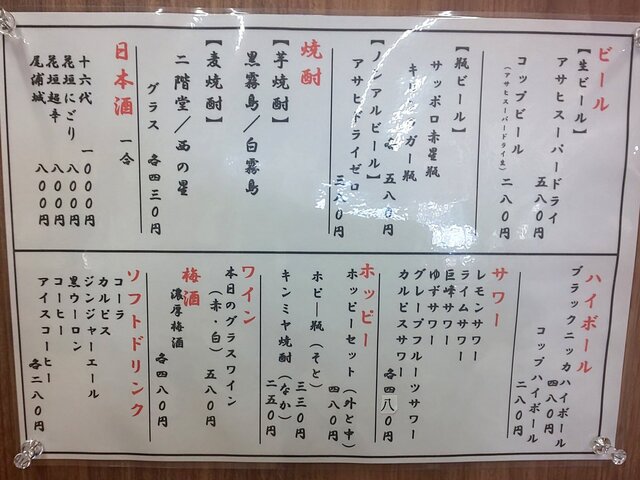 ビール
【生ビール】
アサヒスーパードライ
五八〇円
コップビール
(アサヒスーパードライ生)
二八〇円
【瓶ビール】
サッポロ赤星瓶
キリンラガー瓶
各 五八〇円
【ノンアルビール】
アサヒドライゼロ
三八〇円
焼酎
【芋焼酎】
黒霧島/白霧島
【麦焼酎】
二階堂/西の星
グラス 各四三〇円
日本酒 一合
十六代 一〇〇〇円
花垣にごり 八〇〇円
花垣超辛 八〇〇円
尾浦城 八〇〇円
ハイボール
ブラックニッカハイボール
四八〇円
コップハイボール
二八〇円
サワー
レモンサワー
ライムサワー
巨峰サワー
ゆずサワー
グレープフルーツサワー
カルピスサワー
各四八〇円
ホッピー
ホッピーセット(外と中)
四八〇円
ホピー瓶(そと)
三三〇円
キンミヤ焼酎(なか)
二五〇円
ワイン
本日のグラスワイン
(赤・白) 五八〇円
梅酒
濃厚梅酒
各四八〇円
ソフトドリンク
コーラ
カルピス
ジンジャーエール
黒ウーロン
コーヒー
アイスコーヒー
各二八〇円